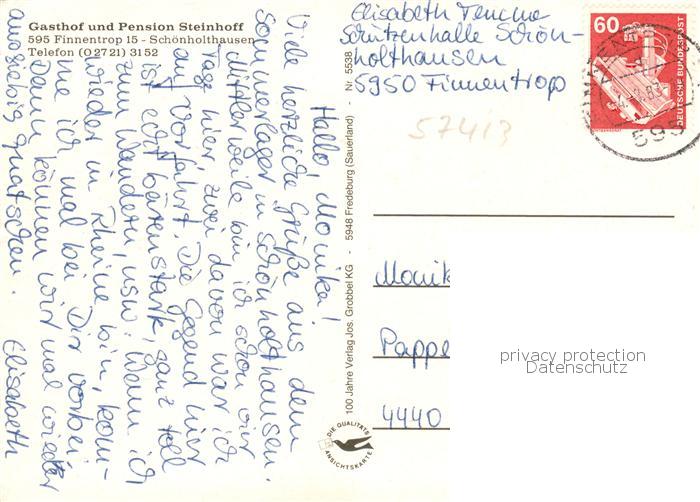 Gasthof und Pension Steinhoff
595 Finnentrop 15 - Schönholthausen
Telefon (02721) 3152
Hallo Monika!
Viele herzliche Grüße aus dem
Sommerlager in Schönholthausen.
Mittlerweile bin ich schon vier
Tage hier, zwei davon war ich
auf Vorfahrt. Die Gegend hier
ist echt bärenstark, ganz toll
zum Wandern usw. Wenn ich
wieder in Rheine bin, kom-
me ich mal bei Dir vorbei.
Dann können wir mal wieder
ausgiebig quatschen.
Elisabeth
100 Jahre Verlag Jos. Grobbel KG - 5948 Fredeburg (Sauerland) - Nr. 5538
DIE QUALITÄTS
ANSICHTSKARTE
Elisabeth
Schützenhalle Schön-
holthausen
5950 Finnentrop
57413
60
DEUTSCHE BUNDESPOST
Monik
Pappe
4440
privacy protection
Datenschutz